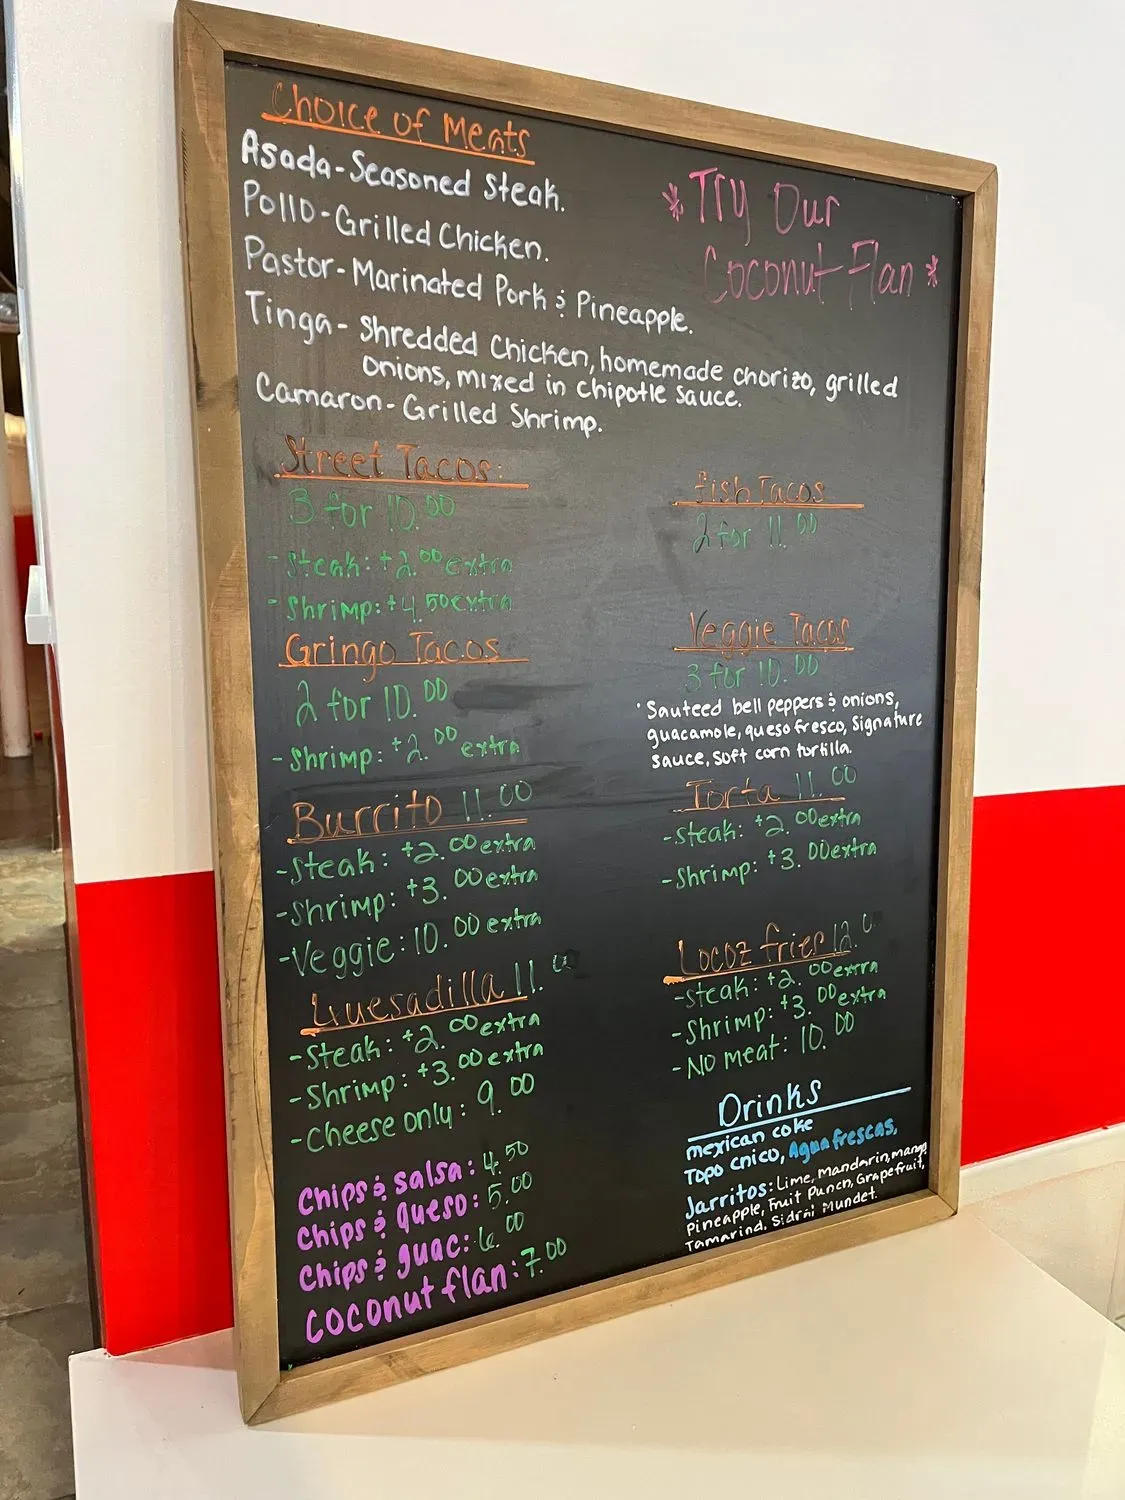 Choice of Meats
Asada-Seasoned Steak.
Pollo-Grilled Chicken.
Pastor-Marinated Pork & Pineapple.
Tinga- Shredded Chicken, homemade chorizo, grilled
onions, mixed in chipotle sauce.
Camaron-Grilled Shrimp.
*Try Our
Coconut Flan*
Street Tacos:
3 for 10.00
-Steak: +2.00 extra
-Shrimp: +4.50 extra
Gringo Tacos
2 for 10.00
-Shrimp: +2.00 extra
Burrito 11.00
-Steak: +2.00 extra
-Shrimp: +3.00 extra
-Veggie: 10.00 extra
Quesadilla 11.00
-Steak: +2.00 extra
-Shrimp: +3.00 extra
-Cheese only: 9.00
Chips & salsa: 4.50
Chips & queso: 5.00
Chips & guac: 6.00
Coconut flan: 7.00
fish Tacos
2 for 11.00
Veggie Tacos
3 for 10.00
·Sauteed bell peppers & onions,
guacamole, queso fresco, Signature
sauce, soft corn tortilla.
Torta 11.00
-Steak: +2.00 extra
-Shrimp: +3.00 extra
Locoz fries 12.0
-Steak: +2.00 extra
-Shrimp: +3.00 extra
-No meat: 10.00
Drinks
mexican coke
Topo chico, Agua frescas,
Jarritos: Lime, mandarin, mango,
pineapple, Fruit Punch, Grapefruit,
Tamarind. Sidral Mundet.